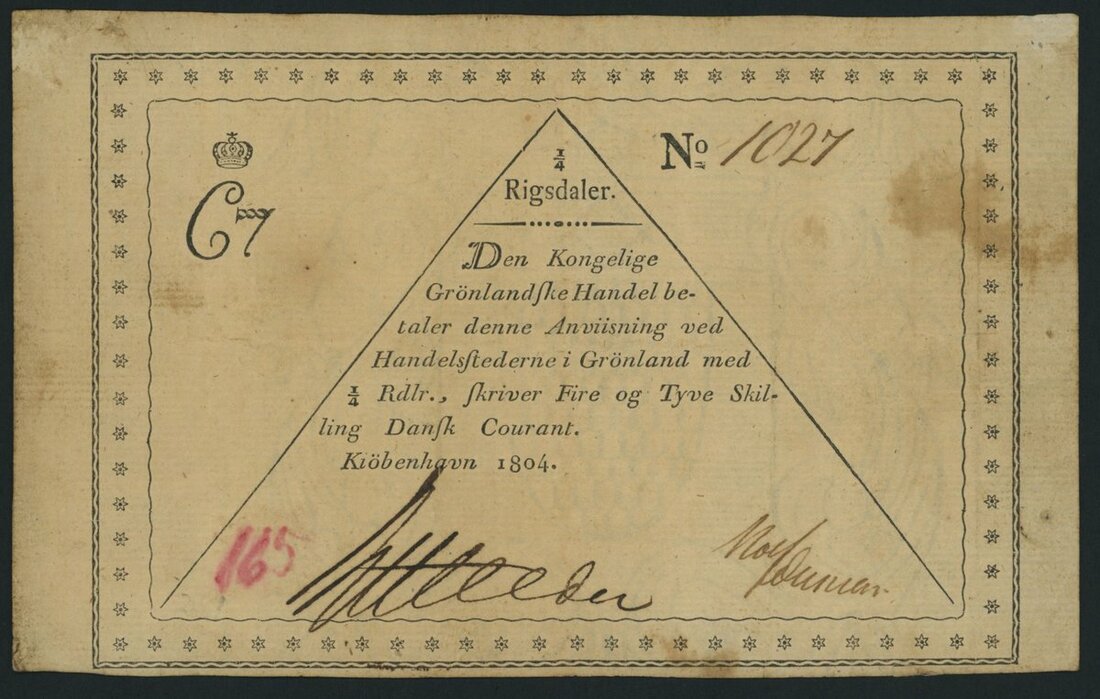 C7
No 1027
1/4
Rigsdaler.
Den Kongelige
Grönlandſke Handel be-
taler denne Anviisning ved
Handelsſtederne i Grönland med
1/4 Rdlr., ſkriver Fire og Tyve Skil-
ling Danſk Courant.
Kiöbenhavn 1804.
165